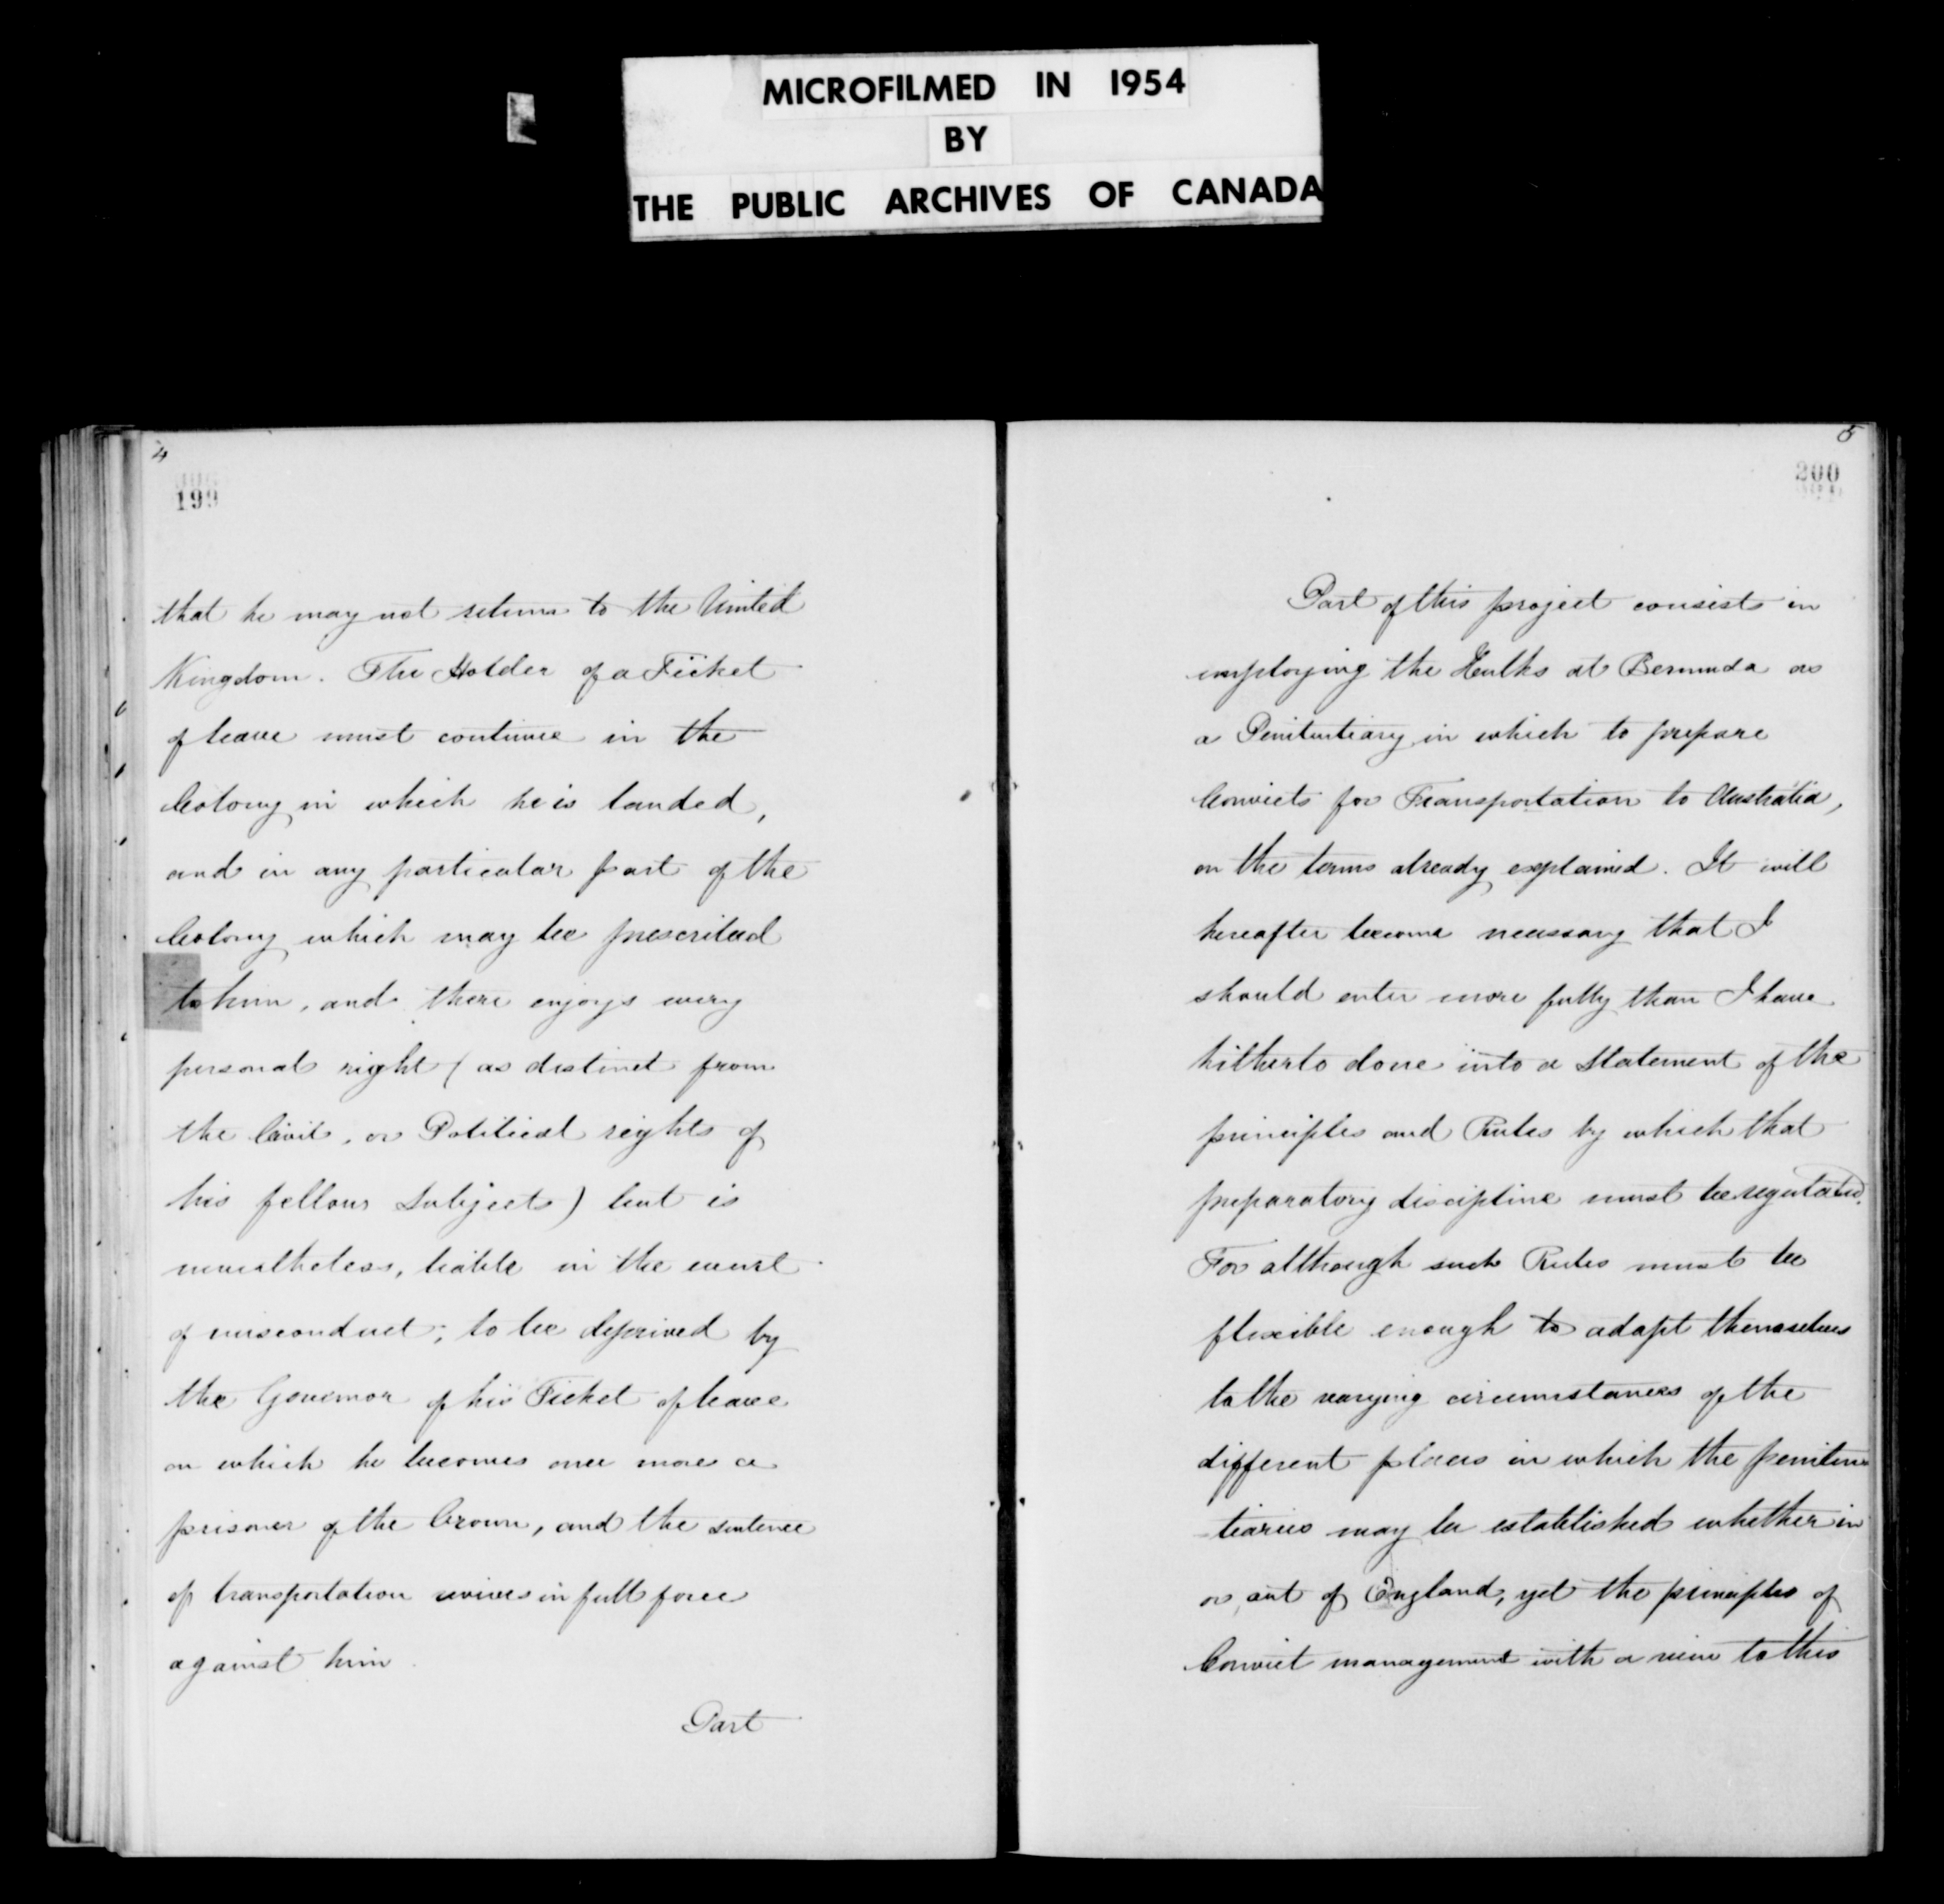 MICROFILMED IN 1954
BY
THE PUBLIC ARCHIVES OF CANADA
4
199
that he may not return to the United
Kingdom. The Holder of a Ticket
of leave must continue in the
Colony in which he is landed,
and in any particular part of the
Colony which may be prescribed
to him, and there enjoys every
personal right (as distinct from
the Civil, or Political rights of
his fellow Subjects) but is
nevertheless, liable in the event
of misconduct; to be deprived by
the Governor of his Ticket of leave
on which he becomes once more a
prisoner of the Crown, and the sentence
of transportation revives in full force
against him
Part
5
200
Part of this project consists in
employing the Hulks at Bermuda as
a Penitentiary in which to prepare
Convicts for Transportation to Australia,
on the terms already explained. It will
hereafter become necessary that I
should enter more fully than I have
hitherto done into a Statement of the
principles and Rules by which that
preparatory discipline must be regulated.
For although such Rules must be
flexible enough to adapt themselves
to the varying circumstances of the
different places in which the peniten
tiaries may be established whether in
or out of England, yet the principles of
Convict management with a view to this